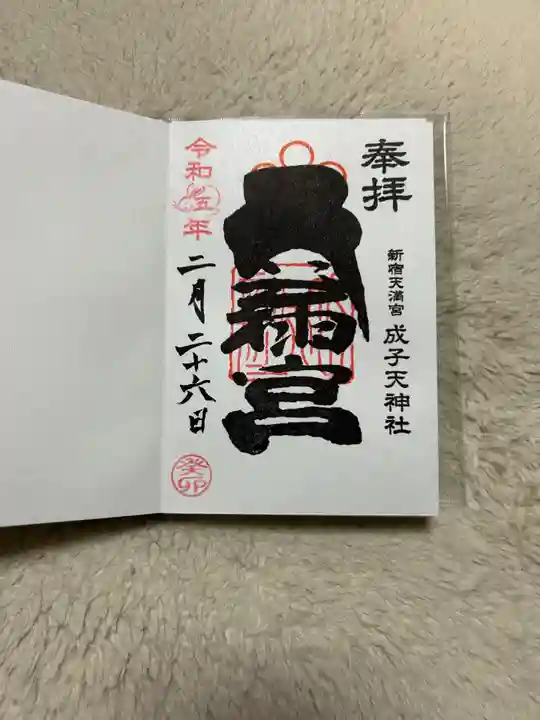 奉拝
新宿天満宮 成子天神社
天満宮
令和五年
二月二十六日
癸卯